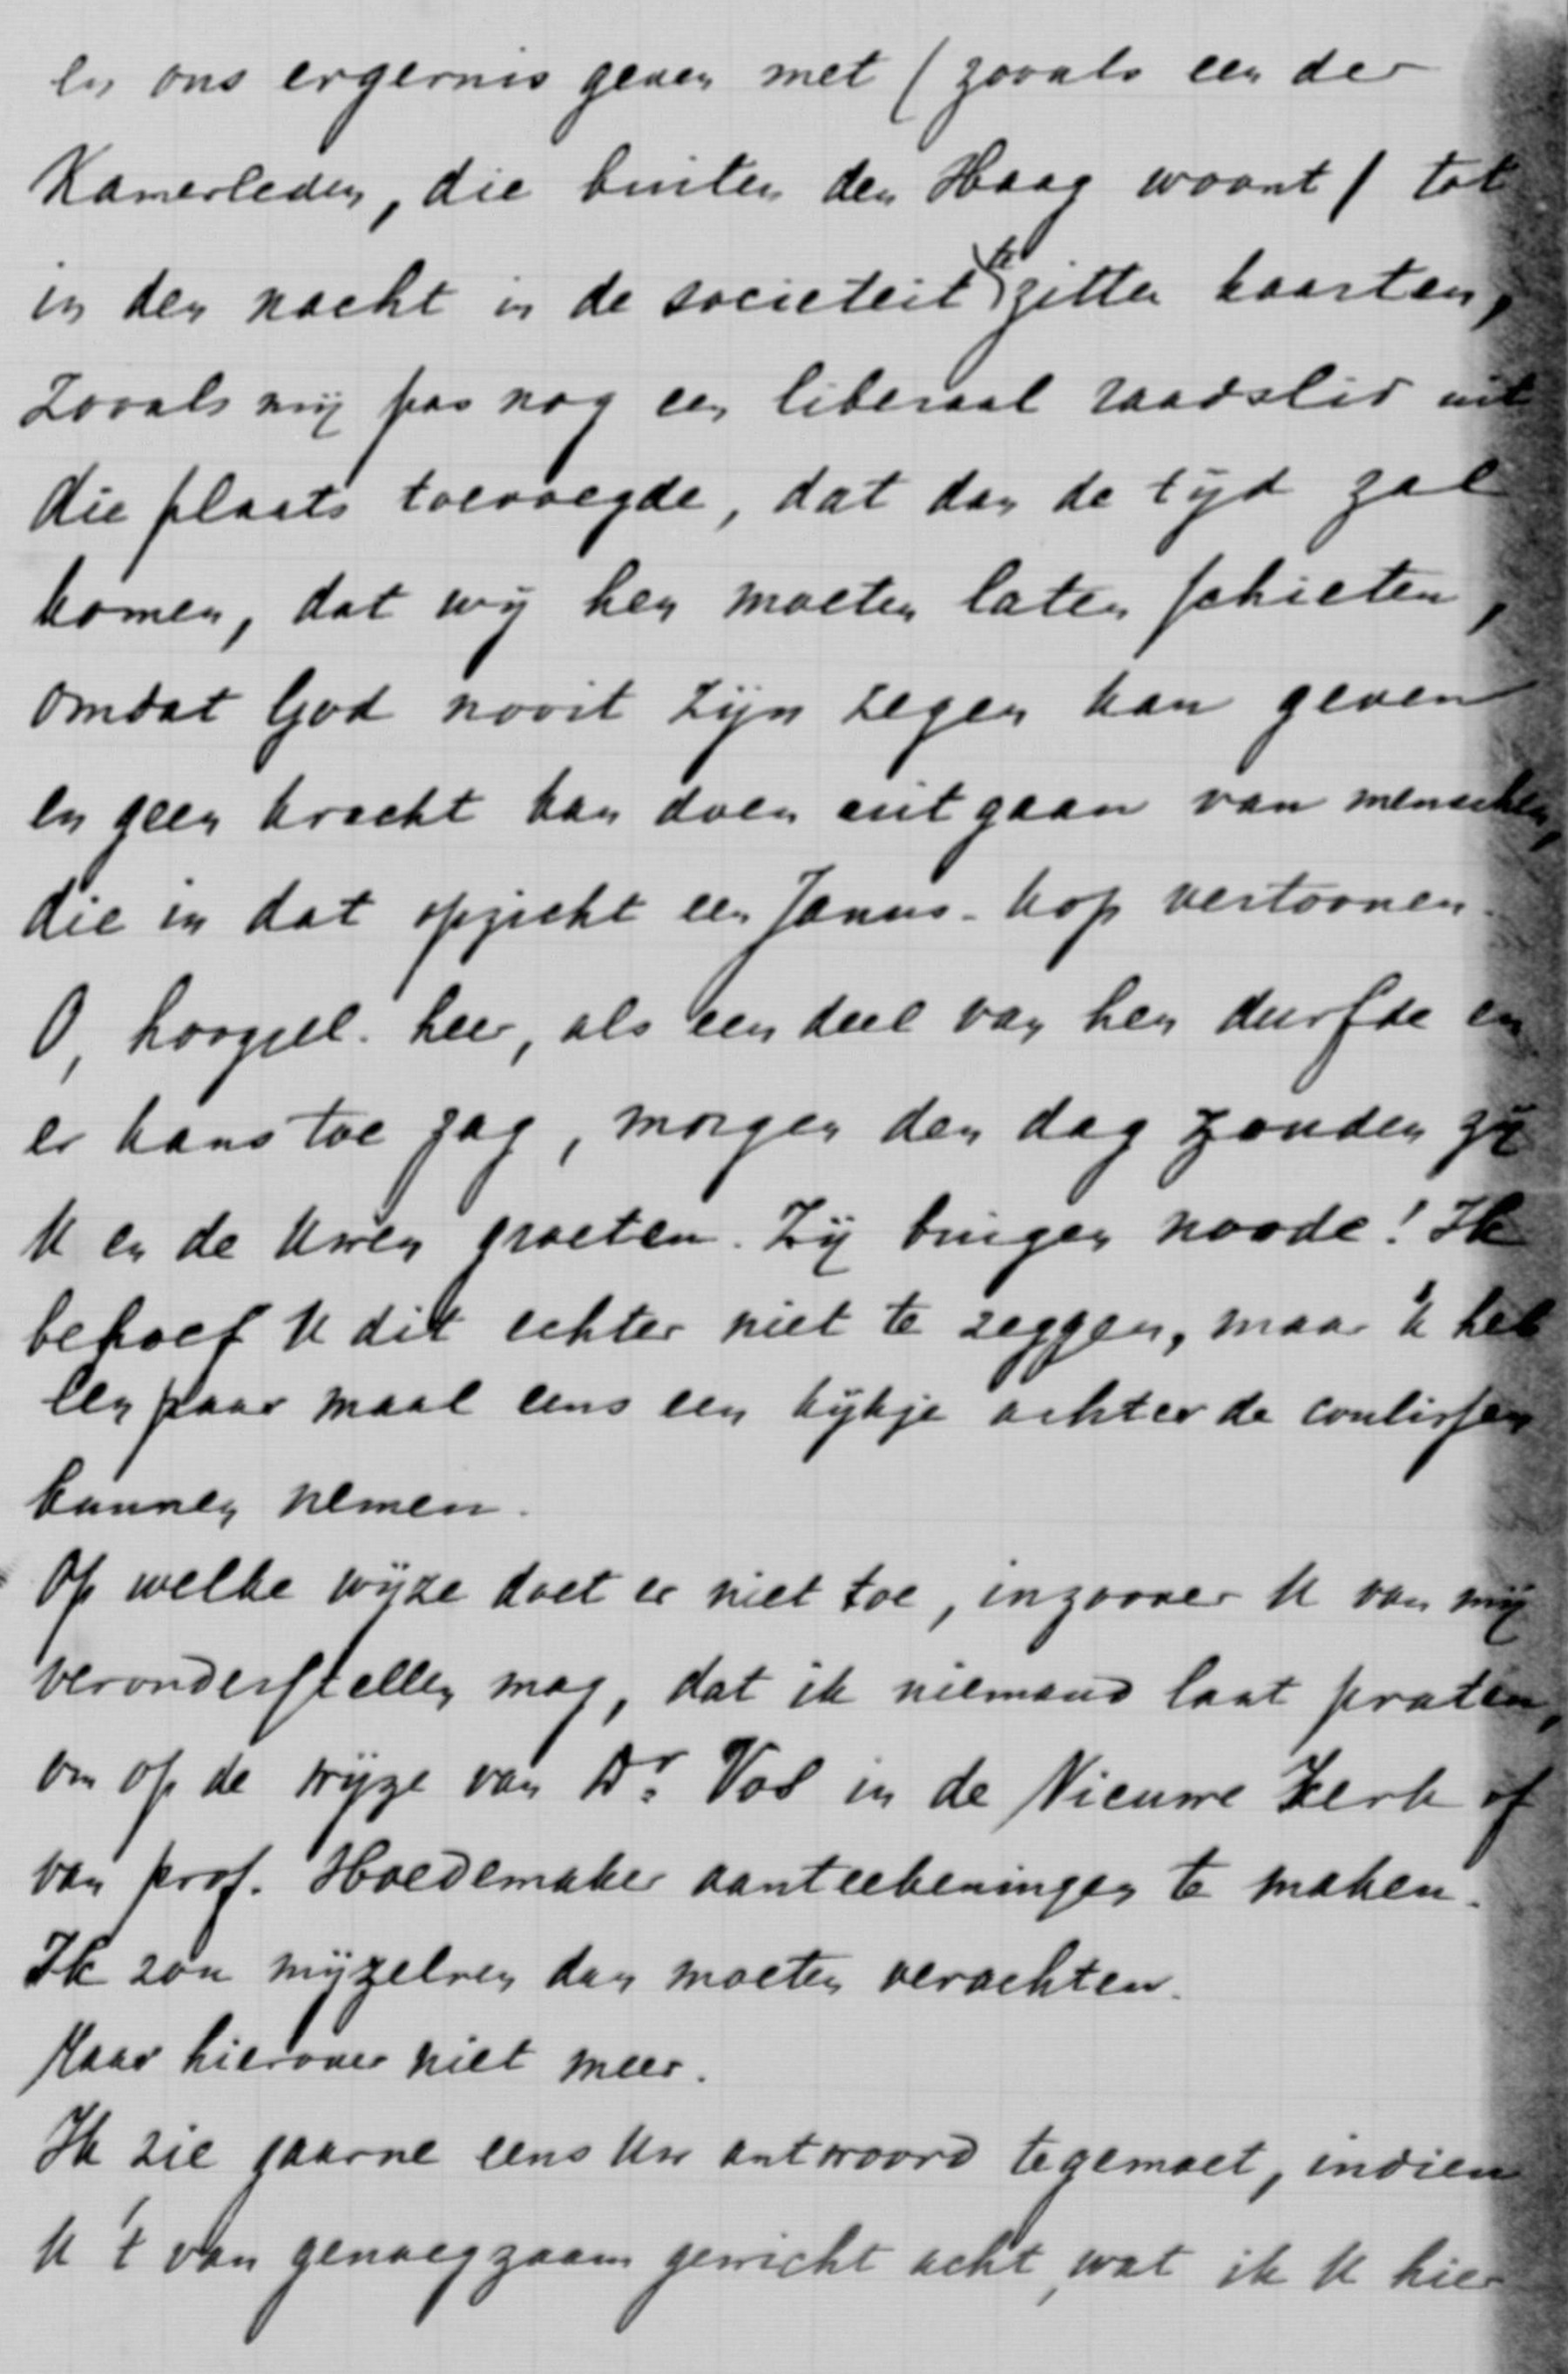 en ons ergernis geven met (zooals een der
Kamerleden, die buiten den Haag woont) tot
in den nacht in de societeit te zitten kaarten,
zooals mij pas nog een liberaal raadslid uit
die plaats toevoegde, dat dan de tijd zal
komen, dat wij hen moeten laten schieten,
omdat God nooit zijn zegen kan geven
en geen kracht kan doen uitgaan van menschen,
die in dat opzicht een Janus-kop vertoonen.
O, hooggel. heer, als een deel van hen durfde en
er kans toe zag, morgen den dag zouden zij
U en de Uwen groeten. Zij buigen noode! Ik
behoef U dit echter niet te zeggen, maar 'k heb
een paar maal eens een kijkje achter de coulissen
kunnen nemen.
Op welke wijze doet er niet toe, inzoover U van mij
veronderstellen mag, dat ik niemand laat praten,
om op de wijze van Dr. Vos in de Nieuwe Kerk of
van prof. Hoedemaker aanteekeningen te maken.
Ik zou mijzelven dan moeten verachten.
Maar hierover niet meer.
Ik zie gaarne eens Uw antwoord tegemoet, indien
U 't van genoegzaam gewicht acht, wat ik U hier